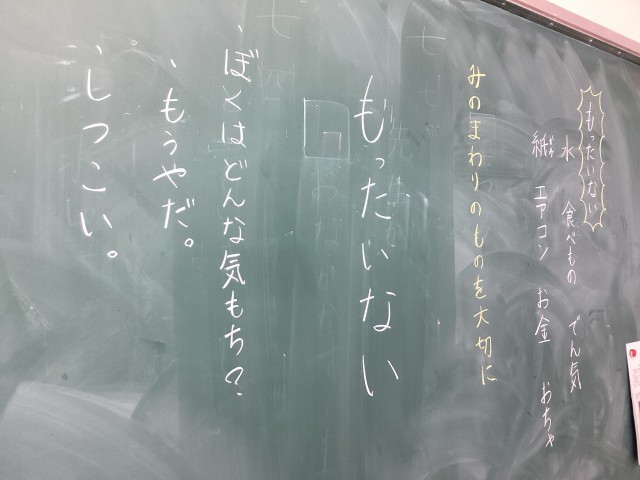 もったいない
水 食べもの でん気
紙 エアコン お金 おちゃ
みのまわりのものを大切に
もったいない
ぼくはどんな気もち?
・もうやだ。
・しつこい。